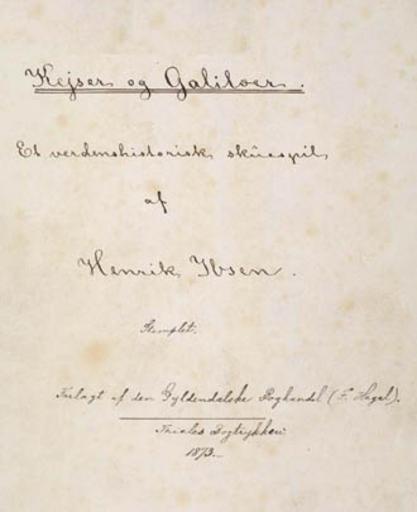 Kejser og Galilæer.
Et verdenshistorisk skuespil
af
Henrik Ibsen.
Forlagt af den Gyldendalske Boghandel (F. Hegel).
Thieles Bogtrykkeri
1873.